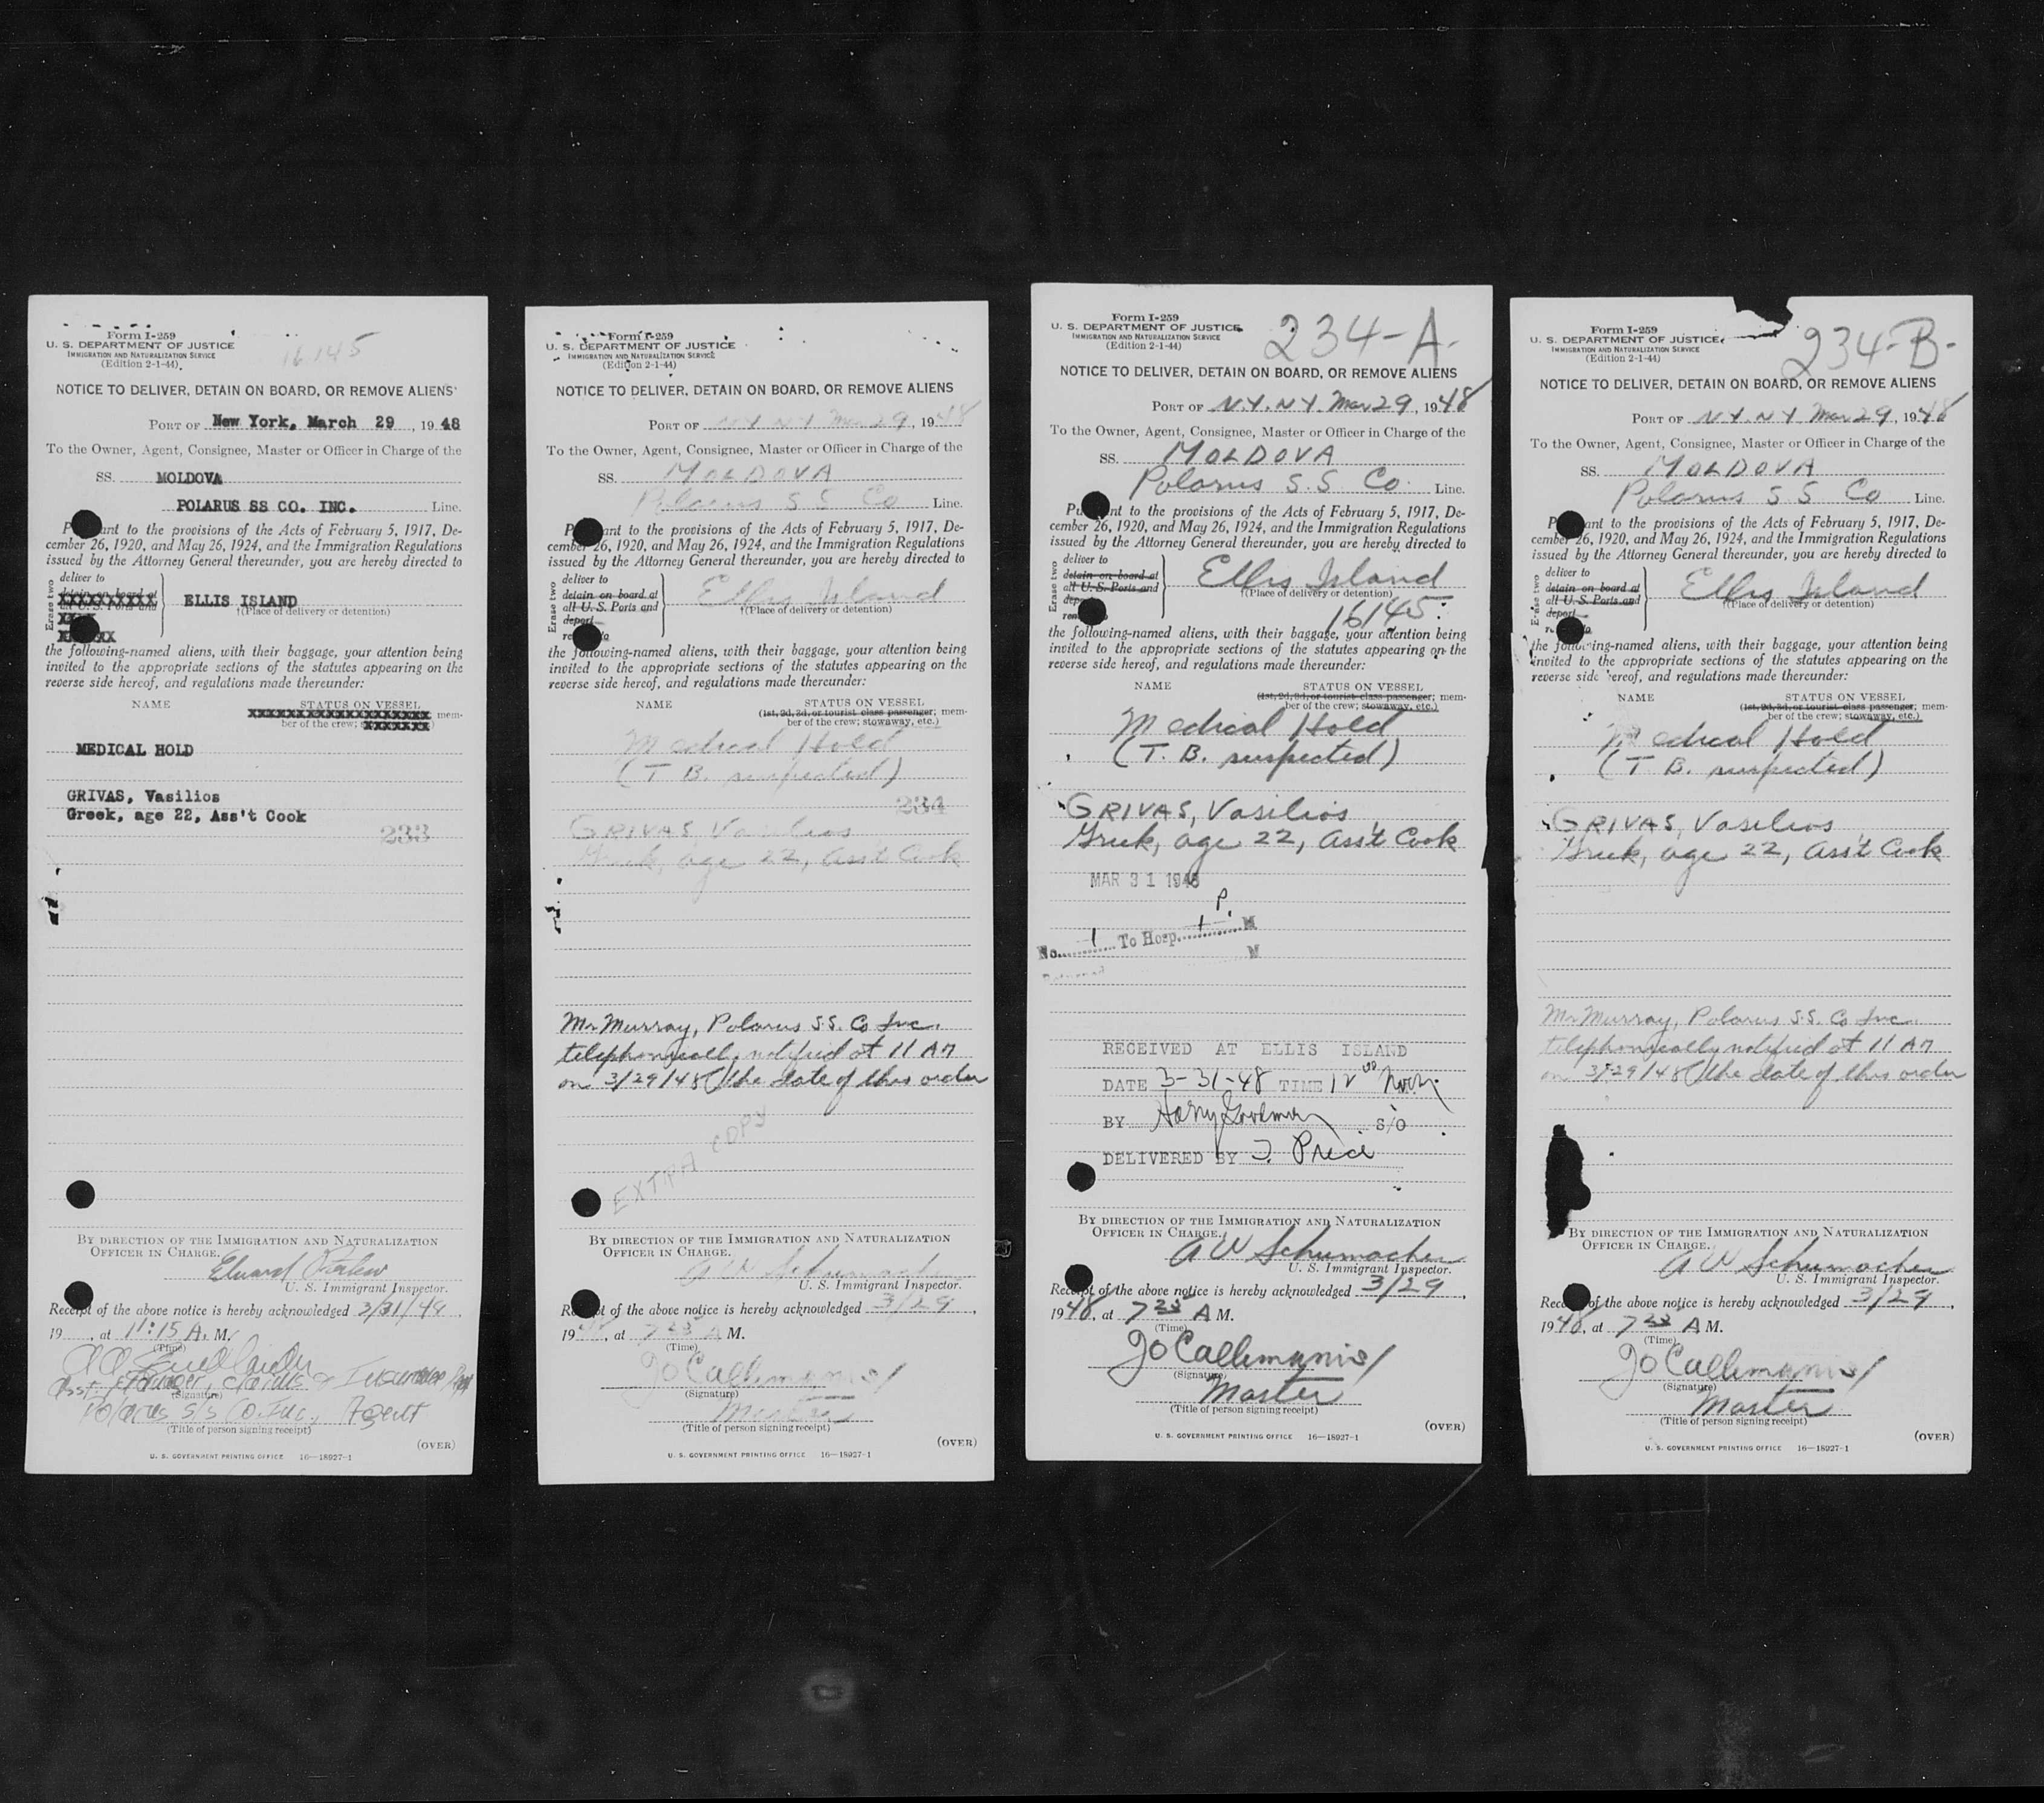 Form I-259
U. S. DEPARTMENT OF JUSTICE
IMMIGRATION AND NATURALIZATION SERVICE
(Edition 2-1-44)
16145
NOTICE TO DELIVER, DETAIN ON BOARD, OR REMOVE ALIENS
PORT OF New York, March 29, 1948
To the Owner, Agent, Consignee, Master or Officer in Charge of the
SS. MOLDOVA
POLARUS SS CO. INC. Line.
ant to the provisions of the Acts of February 5, 1917, De-
cember 26, 1920, and May 26, 1924, and the Immigration Regulations
issued by the Attorney General thereunder, you are hereby directed to
Erase two
deliver to
detain on board at
all U. S. Ports and
ELLIS ISLAND
(Place of delivery or detention)
the following-named aliens, with their baggage, your attention being
invited to the appropriate sections of the statutes appearing on the
reverse side hereof, and regulations made thereunder:
NAME STATUS ON VESSEL
XXXXXXXXXXXXXXXXXXXX mem-
ber of the crew; XXXXXXX
MEDICAL HOLD
GRIVAS, Vasilios
Greek, age 22, Ass't Cook
233
BY DIRECTION OF THE IMMIGRATION AND NATURALIZATION
OFFICER IN CHARGE.
U. S. Immigrant Inspector.
Receipt of the above notice is hereby acknowledged 3/31/48,
19 , at 11:15 A. M.
(Time)
Asst. Manager, Claims & Insurance
(Signature)
Polarus S/S Co. Inc., Agent
(Title of person signing receipt)
(OVER)
U. S. GOVERNMENT PRINTING OFFICE 16—18927-1
Form I-259
U. S. DEPARTMENT OF JUSTICE
IMMIGRATION AND NATURALIZATION SERVICE
(Edition 2-1-44)
NOTICE TO DELIVER, DETAIN ON BOARD, OR REMOVE ALIENS
PORT OF N.Y. N.Y. Mar 29, 1948
To the Owner, Agent, Consignee, Master or Officer in Charge of the
SS. MOLDOVA
Polarus S.S. Co Line.
ant to the provisions of the Acts of February 5, 1917, De-
cember 26, 1920, and May 26, 1924, and the Immigration Regulations
issued by the Attorney General thereunder, you are hereby directed to
Erase two
deliver to
detain on board at
all U. S. Ports and
deport
Ellis Island
(Place of delivery or detention)
the following-named aliens, with their baggage, your attention being
invited to the appropriate sections of the statutes appearing on the
reverse side hereof, and regulations made thereunder:
NAME STATUS ON VESSEL
(1st, 2d, 3d, or tourist class passenger; mem-
ber of the crew; stowaway, etc.)
Medical Hold
(T B. suspected)
234
GRIVAS, Vasilios
Greek, age 22, Ass't Cook
Mr Murray, Polarus S.S. Co Inc.
telephonically notified at 11 AM
on 3/29/48 (the date of this order
EXTRA COPY
BY DIRECTION OF THE IMMIGRATION AND NATURALIZATION
OFFICER IN CHARGE.
A W Schumacher
U. S. Immigrant Inspector.
Receipt of the above notice is hereby acknowledged 3/29,
1948, at 7 25 A M.
(Time)
(Signature)
Master
(Title of person signing receipt)
(OVER)
U. S. GOVERNMENT PRINTING OFFICE 16—18927-1
Form I-259
U. S. DEPARTMENT OF JUSTICE
IMMIGRATION AND NATURALIZATION SERVICE
(Edition 2-1-44)
234-A-
NOTICE TO DELIVER, DETAIN ON BOARD, OR REMOVE ALIENS
PORT OF N.Y. N.Y. Mar 29, 1948
To the Owner, Agent, Consignee, Master or Officer in Charge of the
SS. MOLDOVA
Polarus S.S. Co. Line.
Pu nt to the provisions of the Acts of February 5, 1917, De-
cember 26, 1920, and May 26, 1924, and the Immigration Regulations
issued by the Attorney General thereunder, you are hereby directed to
Erase two
deliver to
detain on board at
all U. S. Ports and
Ellis Island
(Place of delivery or detention)
16145
the following-named aliens, with their baggage, your attention being
invited to the appropriate sections of the statutes appearing on the
reverse side hereof, and regulations made thereunder:
NAME STATUS ON VESSEL
(1st, 2d, 3d, or tourist class passenger; mem-
ber of the crew; stowaway, etc.)
Medical Hold
(T. B. suspected)
GRIVAS, Vasilios
Greek, age 22, Ass't Cook
MAR 31 1948
No. 1 To Hosp. 1 P. M
M
Returned
RECEIVED AT ELLIS ISLAND
DATE 3-31-48 TIME 12 00 Noon
BY Harry Goodman S/O
DELIVERED BY J. Price
BY DIRECTION OF THE IMMIGRATION AND NATURALIZATION
OFFICER IN CHARGE.
A W Schumacher
U. S. Immigrant Inspector.
Receipt of the above notice is hereby acknowledged 3/29,
1948, at 7 25 A M.
(Time)
(Signature)
Master
(Title of person signing receipt)
(OVER)
U. S. GOVERNMENT PRINTING OFFICE 16—18927-1
Form I-259
U. S. DEPARTMENT OF JUSTICE
IMMIGRATION AND NATURALIZATION SERVICE
(Edition 2-1-44)
234-B-
NOTICE TO DELIVER, DETAIN ON BOARD, OR REMOVE ALIENS
PORT OF N.Y. N.Y. Mar 29, 1948
To the Owner, Agent, Consignee, Master or Officer in Charge of the
SS. MOLDOVA
Polarus S S Co Line.
ant to the provisions of the Acts of February 5, 1917, De-
cember 26, 1920, and May 26, 1924, and the Immigration Regulations
issued by the Attorney General thereunder, you are hereby directed to
Erase two
deliver to
detain on board at
all U. S. Ports and
deport
Ellis Island
(Place of delivery or detention)
the following-named aliens, with their baggage, your attention being
invited to the appropriate sections of the statutes appearing on the
reverse side hereof, and regulations made thereunder:
NAME STATUS ON VESSEL
(1st, 2d, 3d, or tourist class passenger; mem-
ber of the crew; stowaway, etc.)
Medical Hold
(T B. suspected)
GRIVAS, Vasilios
Greek, age 22, Ass't Cook
Mr Murray, Polarus S.S. Co Inc.
telephonically notified at 11 AM
on 3/29/48 (the date of this order
BY DIRECTION OF THE IMMIGRATION AND NATURALIZATION
OFFICER IN CHARGE.
A W Schumacher
U. S. Immigrant Inspector.
Receipt of the above notice is hereby acknowledged 3/29,
1948, at 7 25 A M.
(Time)
(Signature)
Master
(Title of person signing receipt)
(OVER)
U. S. GOVERNMENT PRINTING OFFICE 16—18927-1